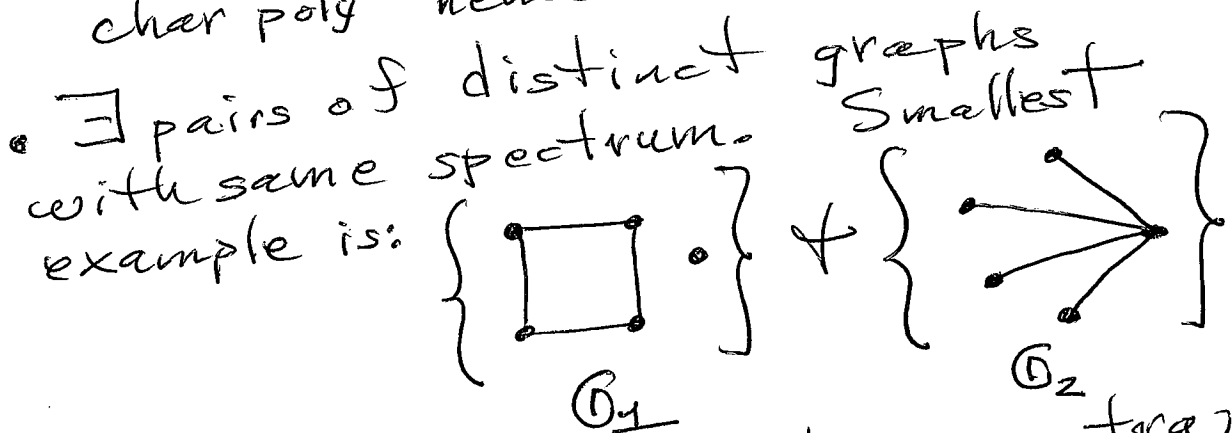 char poly
• ∃ pairs of distinct graphs
with same spectrum. Smallest
example is: { } & { }
G1 G2